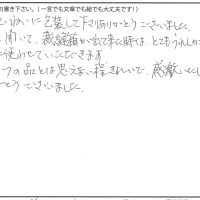 お書き下さい。(一言でも文章でも絵でも大丈夫です!)
ていねいに包装して下さりありがとうございました。
開いて、裁縫箱が出て来た時は、とてもうれしか
使わせていただきます
の品とは思えない程きれいで、感激いたし
とうございました。